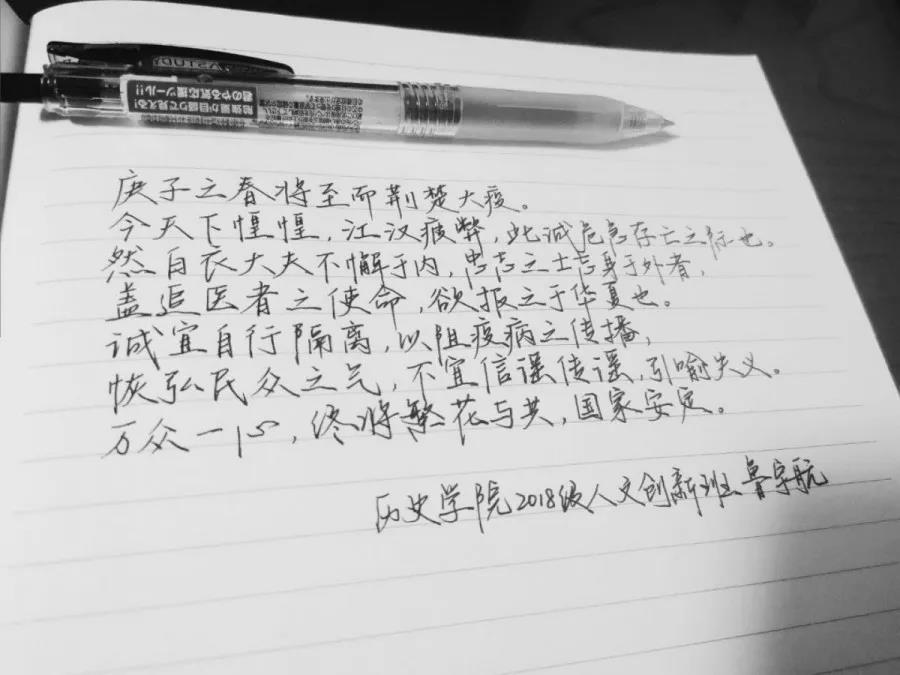 STUDY
勉強量が目盛りで見える!
君のやる気応援ツール!!
庚子之春将至而荆楚大疫。
今天下惶惶,江汉疲弊,此诚危急存亡之际也。
然白衣大夫不懈于内,忠志之士忘身于外者,
盖追医者之使命,欲报之于华夏也。
诚宜自行隔离,以阻疫病之传播,
恢弘民众之气,不宜信谣传谣,引喻失义。
万众一心,终将繁花与共,国家安定。
历史学院2018级人文创新班 鲁宇航